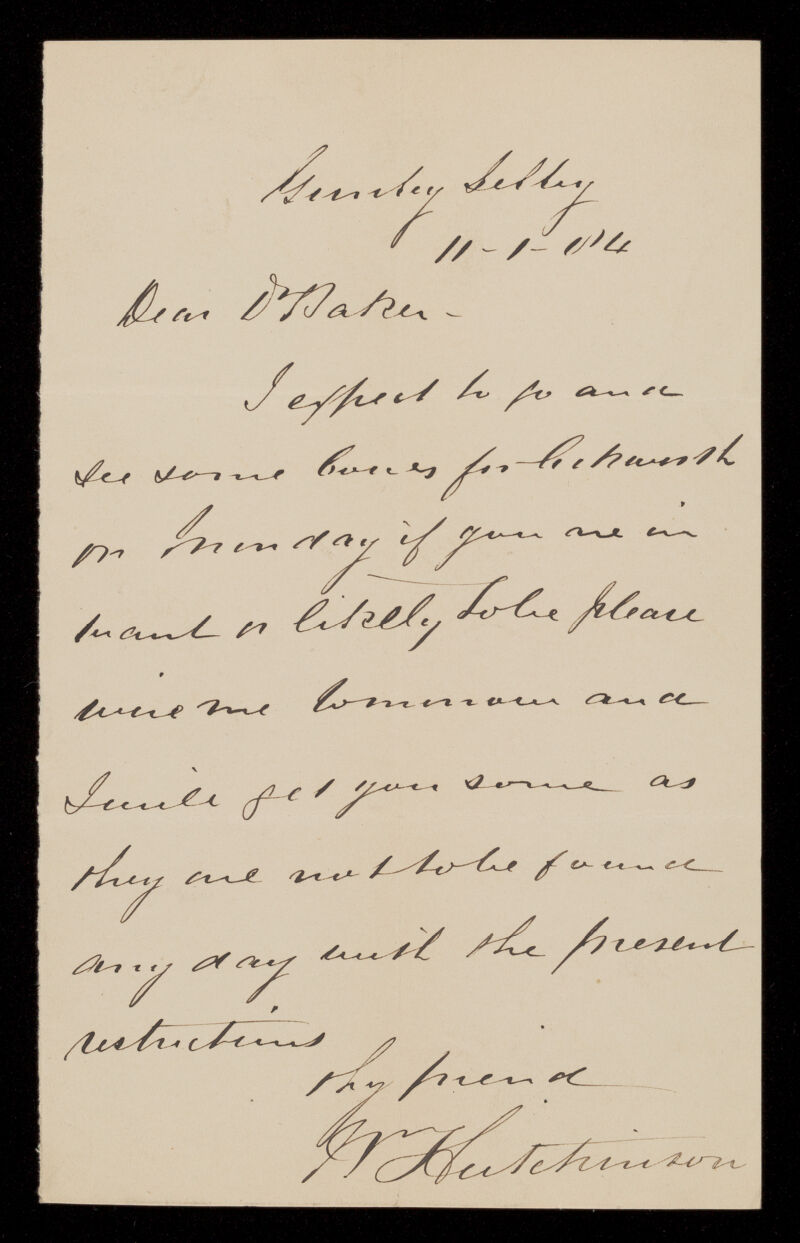 Gunby Selby
11-1-84
Dear Dr Baker -
I expect to go and
see some cows for Ackworth
on Monday if you are in
want or likely to be please
wire me tomorrow and
I will get you some as
they are not to be found
any day with the present
restrictions
thy friend
Wm Hutchinson